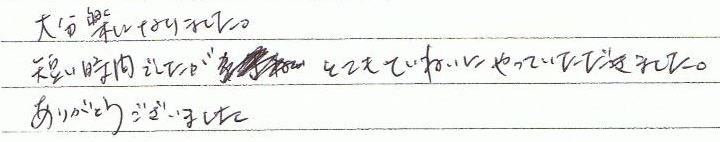 大分楽になりました。
短い時間でしたが とてもていねいにやっていただきました。
ありがとうございました